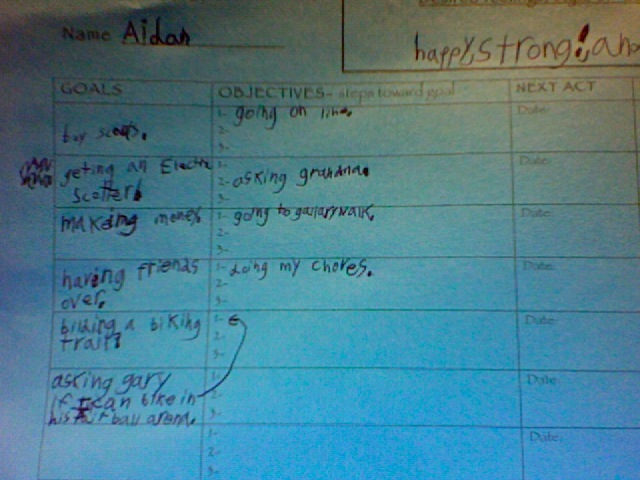 Name Aidan
happy, strong!, and
GOALS OBJECTIVES- steps toward goal NEXT ACT
boy scouts. 1- going on line. Date:
2-
3-
geting an Electric scotter! 1- Date:
2- asking grandma.
3-
makeing money. 1- going to gallary walk. Date:
2-
3-
having friends over. 1- doing my chores. Date:
2-
3-
bilding a biking trail! 1- Date:
2-
3-
asking gary 1- Date:
if I can bike in 2-
his ball arena. 3-
1- Date:
2-
3-